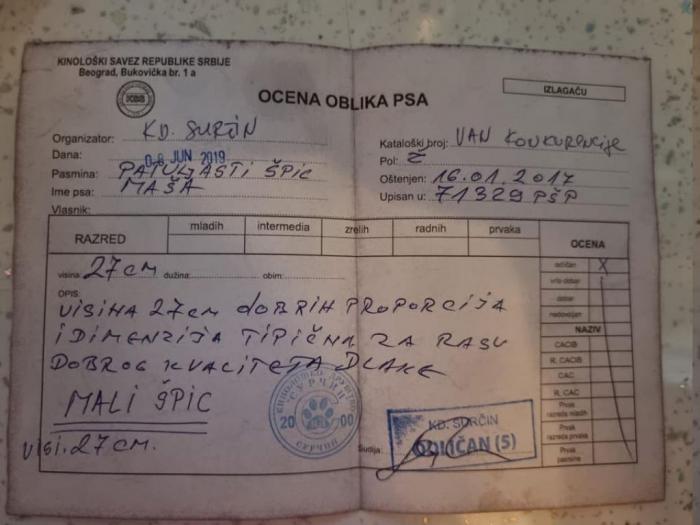 KINOLOŠKI SAVEZ REPUBLIKE SRBIJE
Beograd, Bukovička br. 1 a
KSS
OCENA OBLIKA PSA
IZLAGAČU
Organizator: KD. SURČIN
Dana: 08 JUN 2019
Pasmina: PATULJASTI ŠPIC
Ime psa: MAŠA
Vlasnik:
Kataloški broj: VAN KONKURENCIJE
Pol: Ž
Oštenjen: 16.01.2017
Upisan u: 71329 PŠP
RAZRED
mladih intermedia zrelih radnih prvaka
OCENA
visina: 27cm dužina: obim:
OPIS:
VISINA 27cm DOBRIH PROPORCIJA
I DIMENZIJA TIPIČNA ZA RASU
DOBROG KVALITETA DLAKE
MALI ŠPIC
VISI. 27cm.
odličan X
vrlo dobar
dobar
nedovoljan
NAZIV
CACIB
R. CACIB
CAC
R. CAC
Prvak razreda mladih
Prvak razreda prvaka
Prvak pasmine
КИНОЛОШКО ДРУШТВО
СУРЧИН
20 00
СУРЧИН
Sudija:
KD. SURČIN
ODLIČAN (5)